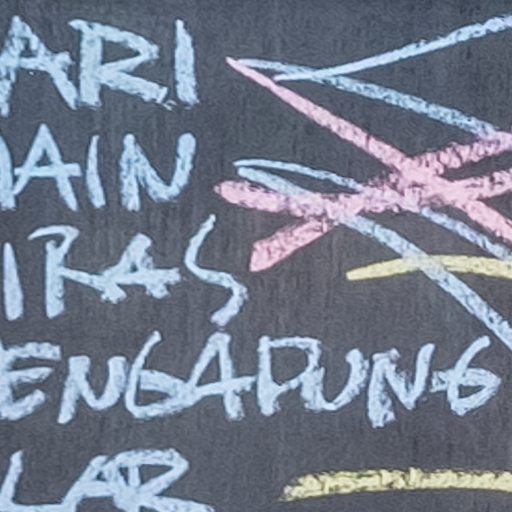 ARI
AIN
IRAS
ENGADUNG
LAR